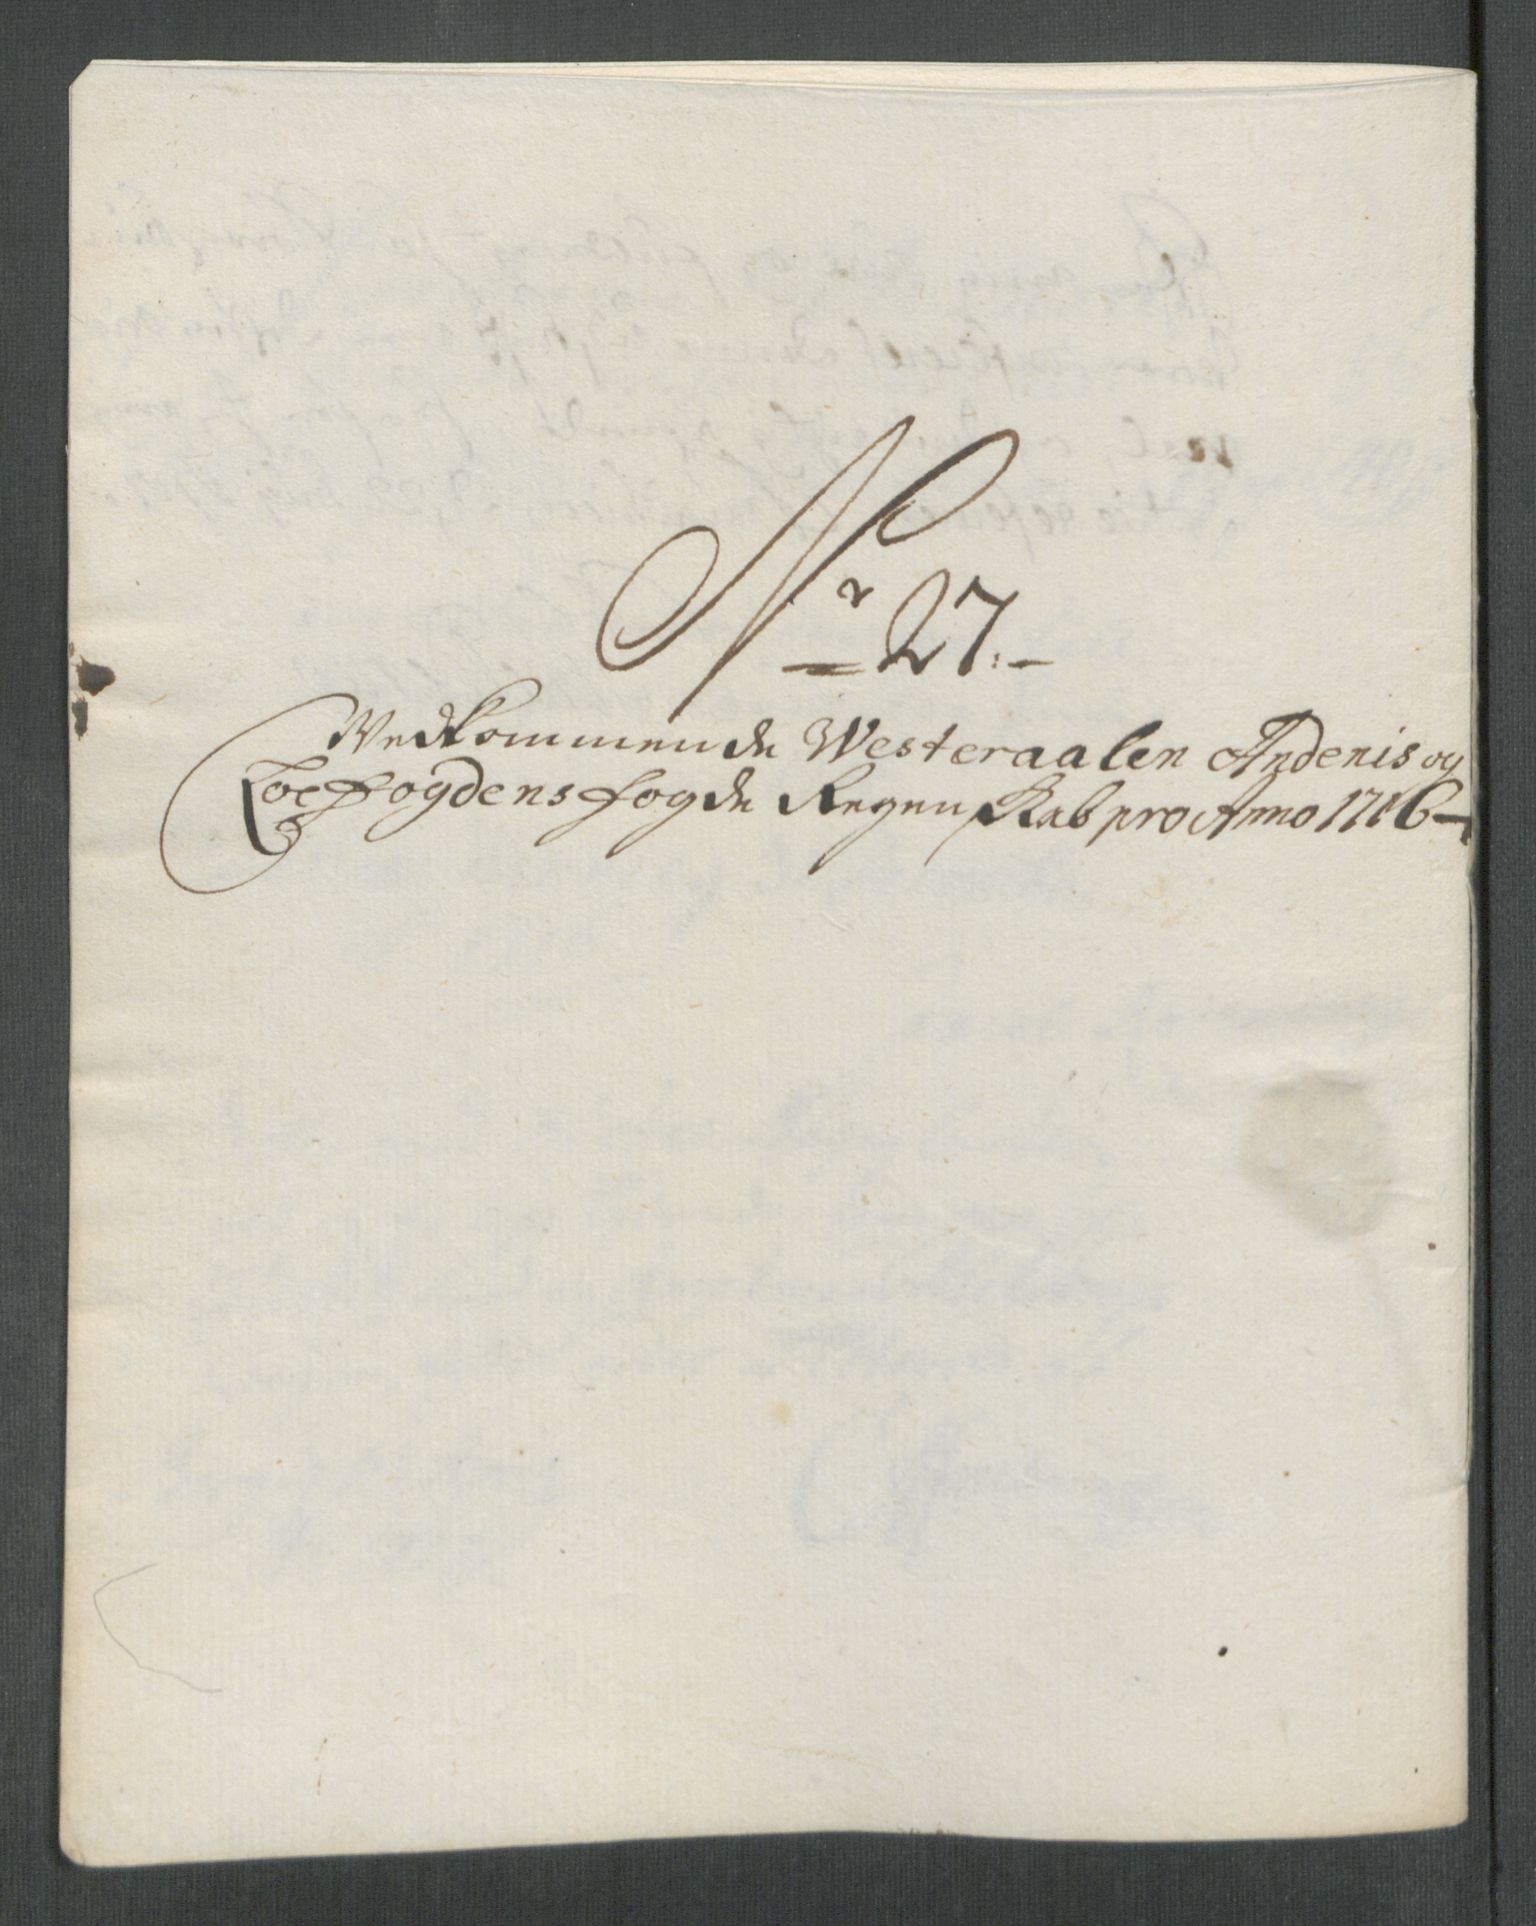 Nr 27:-
Vedkommende Westeraalen Andenis og
Loeffogdens fogde Regenskab pro Anno 1716